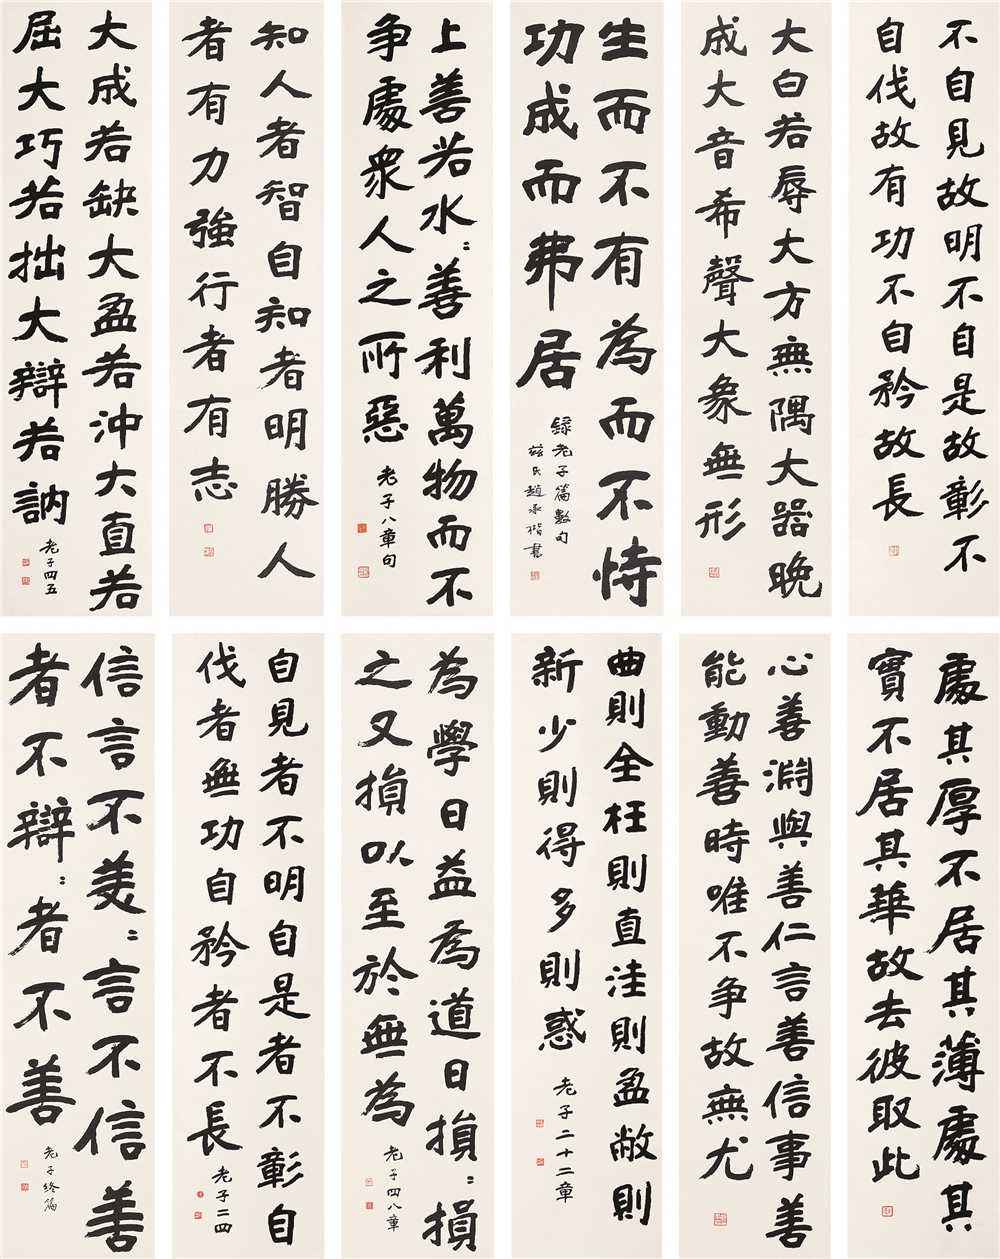 不自見故明不自是故彰不
自伐故有功不自矜故長
大白若辱大方無隅大器晚
成大音希聲大象無形
生而不有為而不恃
功成而弗居
錄老子篇數句
兹氏趙承楷書
上善若水：善利萬物而不
争處衆人之所惡
老子八章句
知人者智自知者明勝人
者有力強行者有志
大成若缺大盈若沖大直若
屈大巧若拙大辯若訥
老子四五
處其厚不居其薄處其
實不居其華故去彼取此
心善淵與善仁言善信事善
能動善時唯不争故無尤
曲則全枉則直洼則盈敝則
新少則得多則惑
老子二十二章
為學日益為道日損：損
之又損以至於無為
老子四八章
自見者不明自是者不彰自
伐者無功自矜者不長
老子二四
信言不美：言不信善
者不辯：者不善
老子終篇